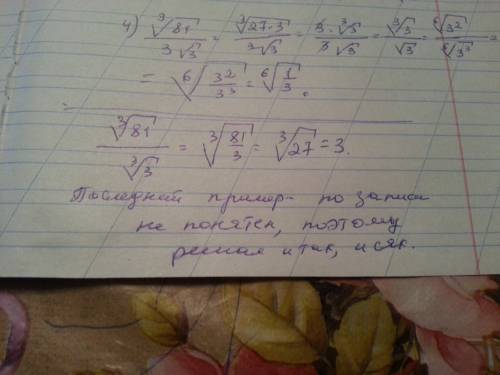 4) ∛81 / 3√3 = ∛(27·3) / 3√3 = 3·∛3 / 3√3 = ∛3 / √3 = ⁶√3² / ⁶√3³ =
= ⁶√(3² / 3³) = ⁶√(1/3).
∛81 / ∛3 = ∛(81/3) = ∛27 = 3.
Последний пример – по записи
не понятен, поэтому
решаю и так, и сяк.